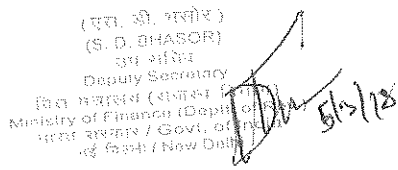 (एस. डी. भसोर)
(S. D. BHASOR)
उप सचिव
Deputy Secretary
वित्त मंत्रालय (राजस्व
Ministry of Finance (Deptt. of
भारत सरकार / Govt. of
नई दिल्ली / New Delhi